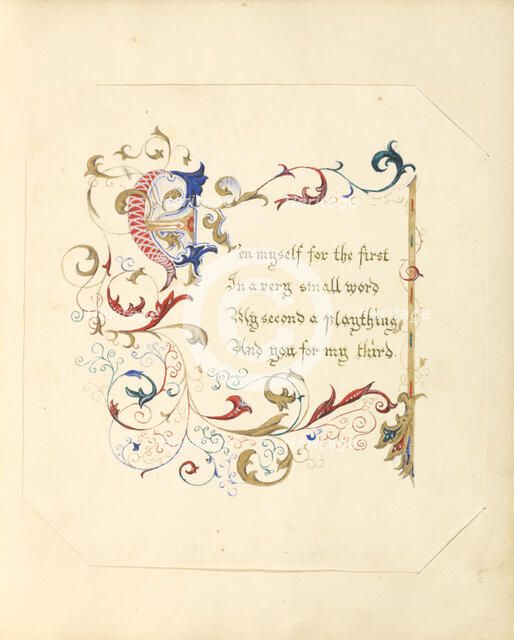 E'en myself for the first
In a very small word
My second a plaything,
And you for my third.